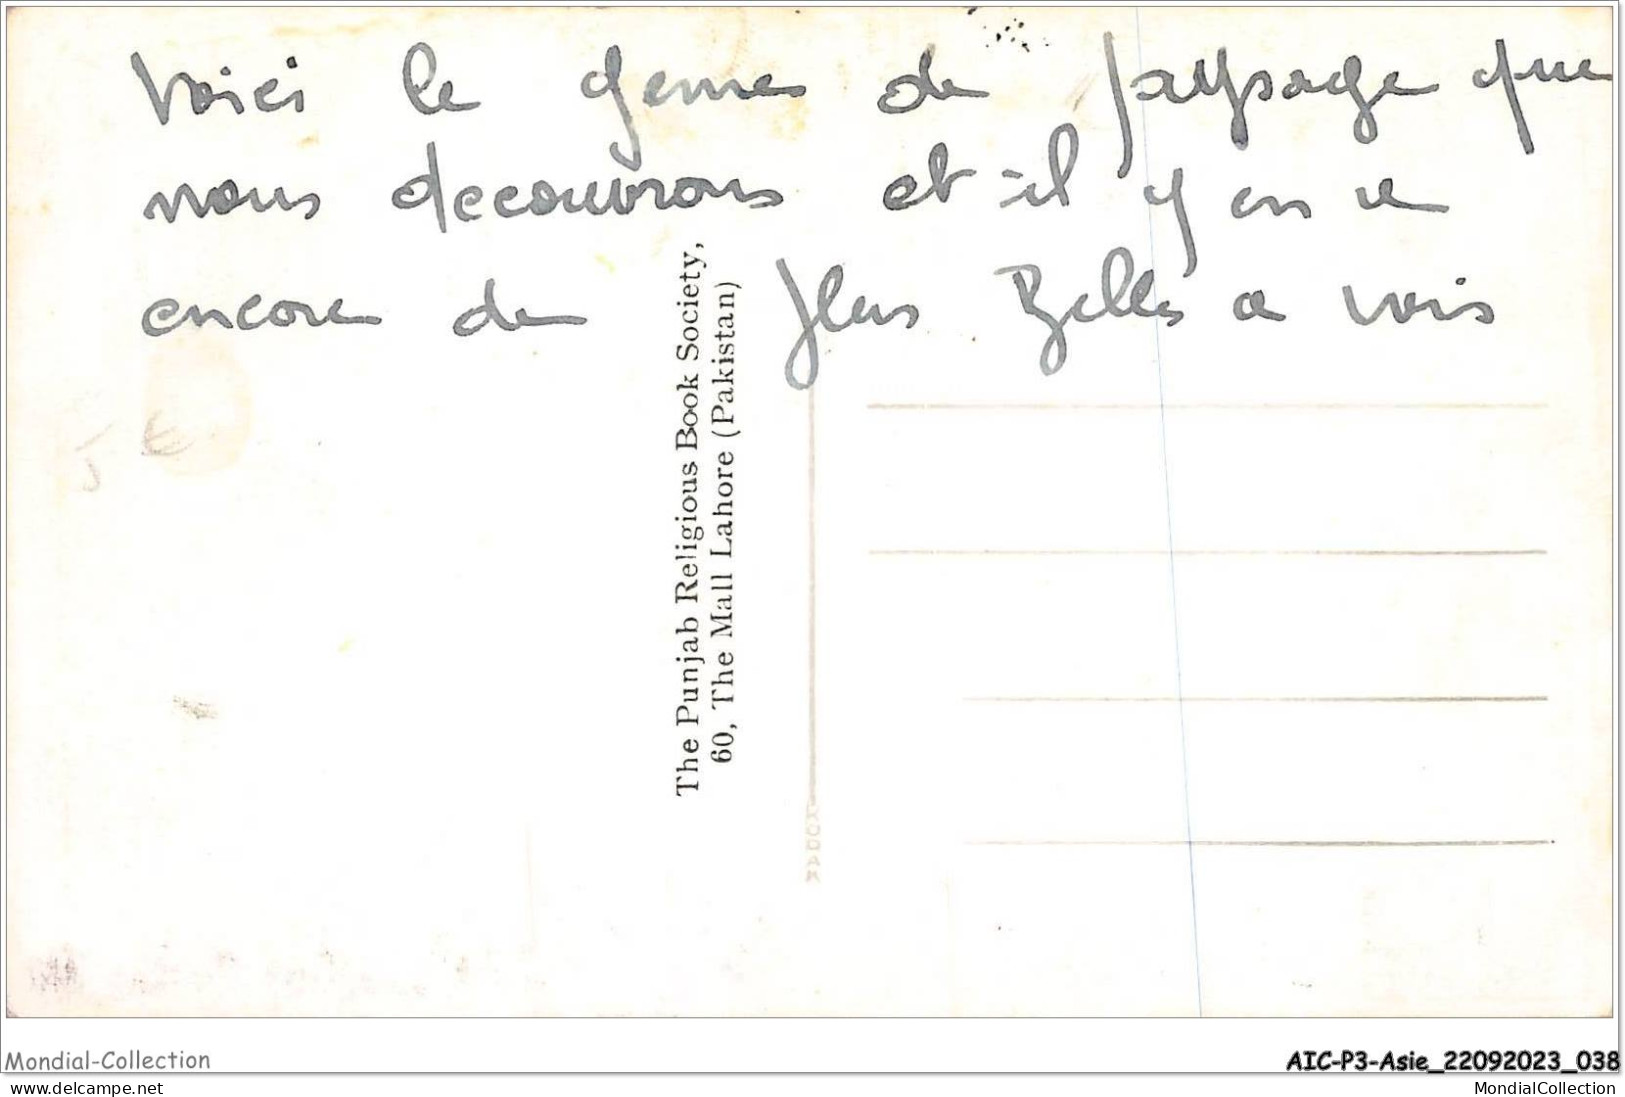 Voici le genre de paysage que
nous decouvrons et il y en a
encore de plus Belles a voir
The Punjab Religious Book Society,
60, The Mall Lahore (Pakistan)
KODAK
5 €
Mondial-Collection
AIC-P3-Asie_22092023_038
www.delcampe.net
MondialCollection